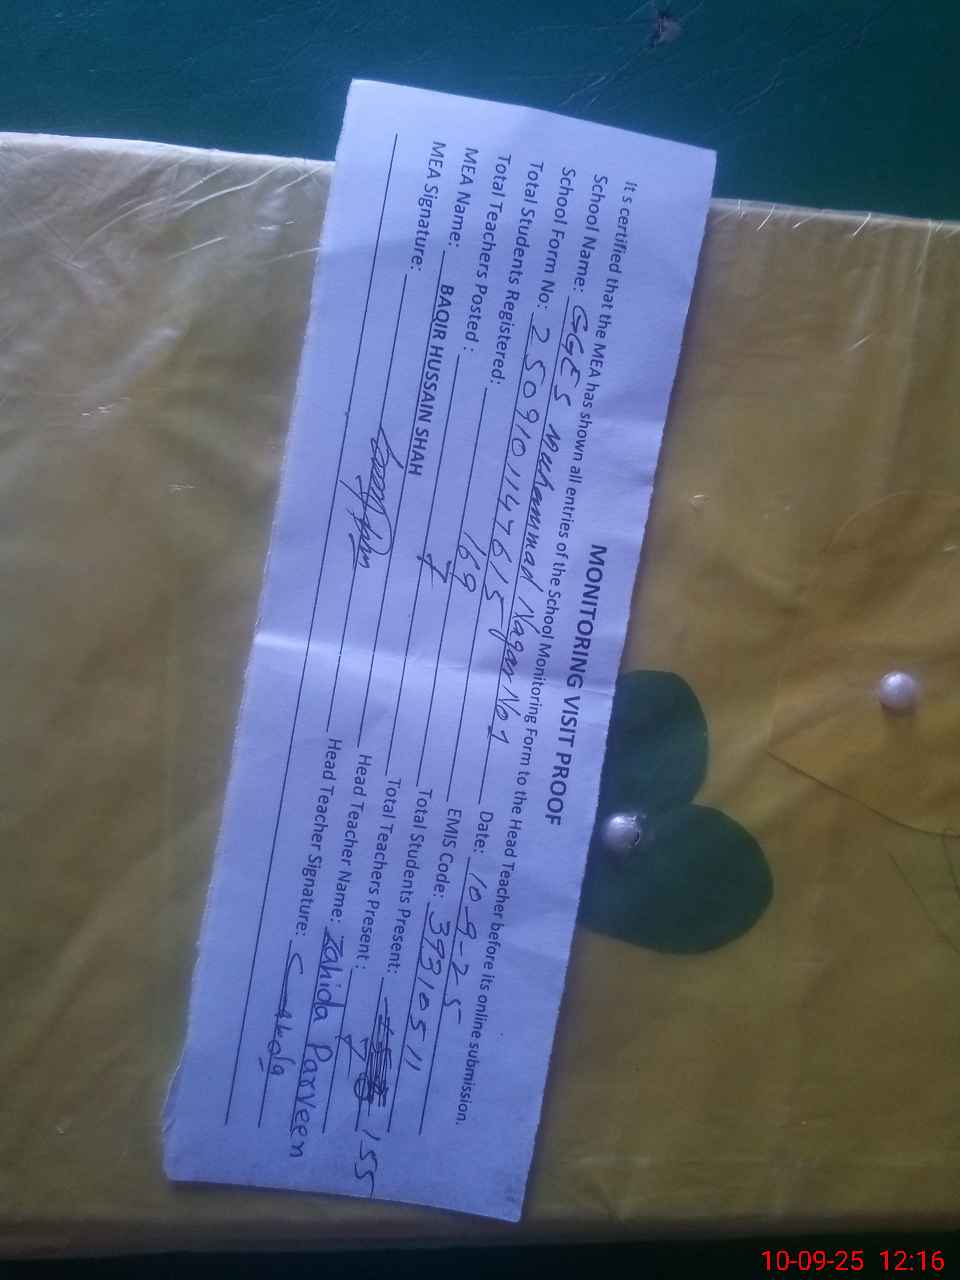 MONITORING VISIT PROOF
It s certified that the MEA has shown all entries of the School Monitoring Form to the Head Teacher before its online submission.
School Name: GGES Muhammad Nagar No 1 Date: 10-9-25
School Form No: 2509101147615 EMIS Code: 39310511
Total Students Registered: 169 Total Students Present: 155
Total Teachers Posted : 7 Total Teachers Present : 7
MEA Name: BAQIR HUSSAIN SHAH Head Teacher Name: Zahida Parveen
MEA Signature: Head Teacher Signature:
10-09-25 12:16